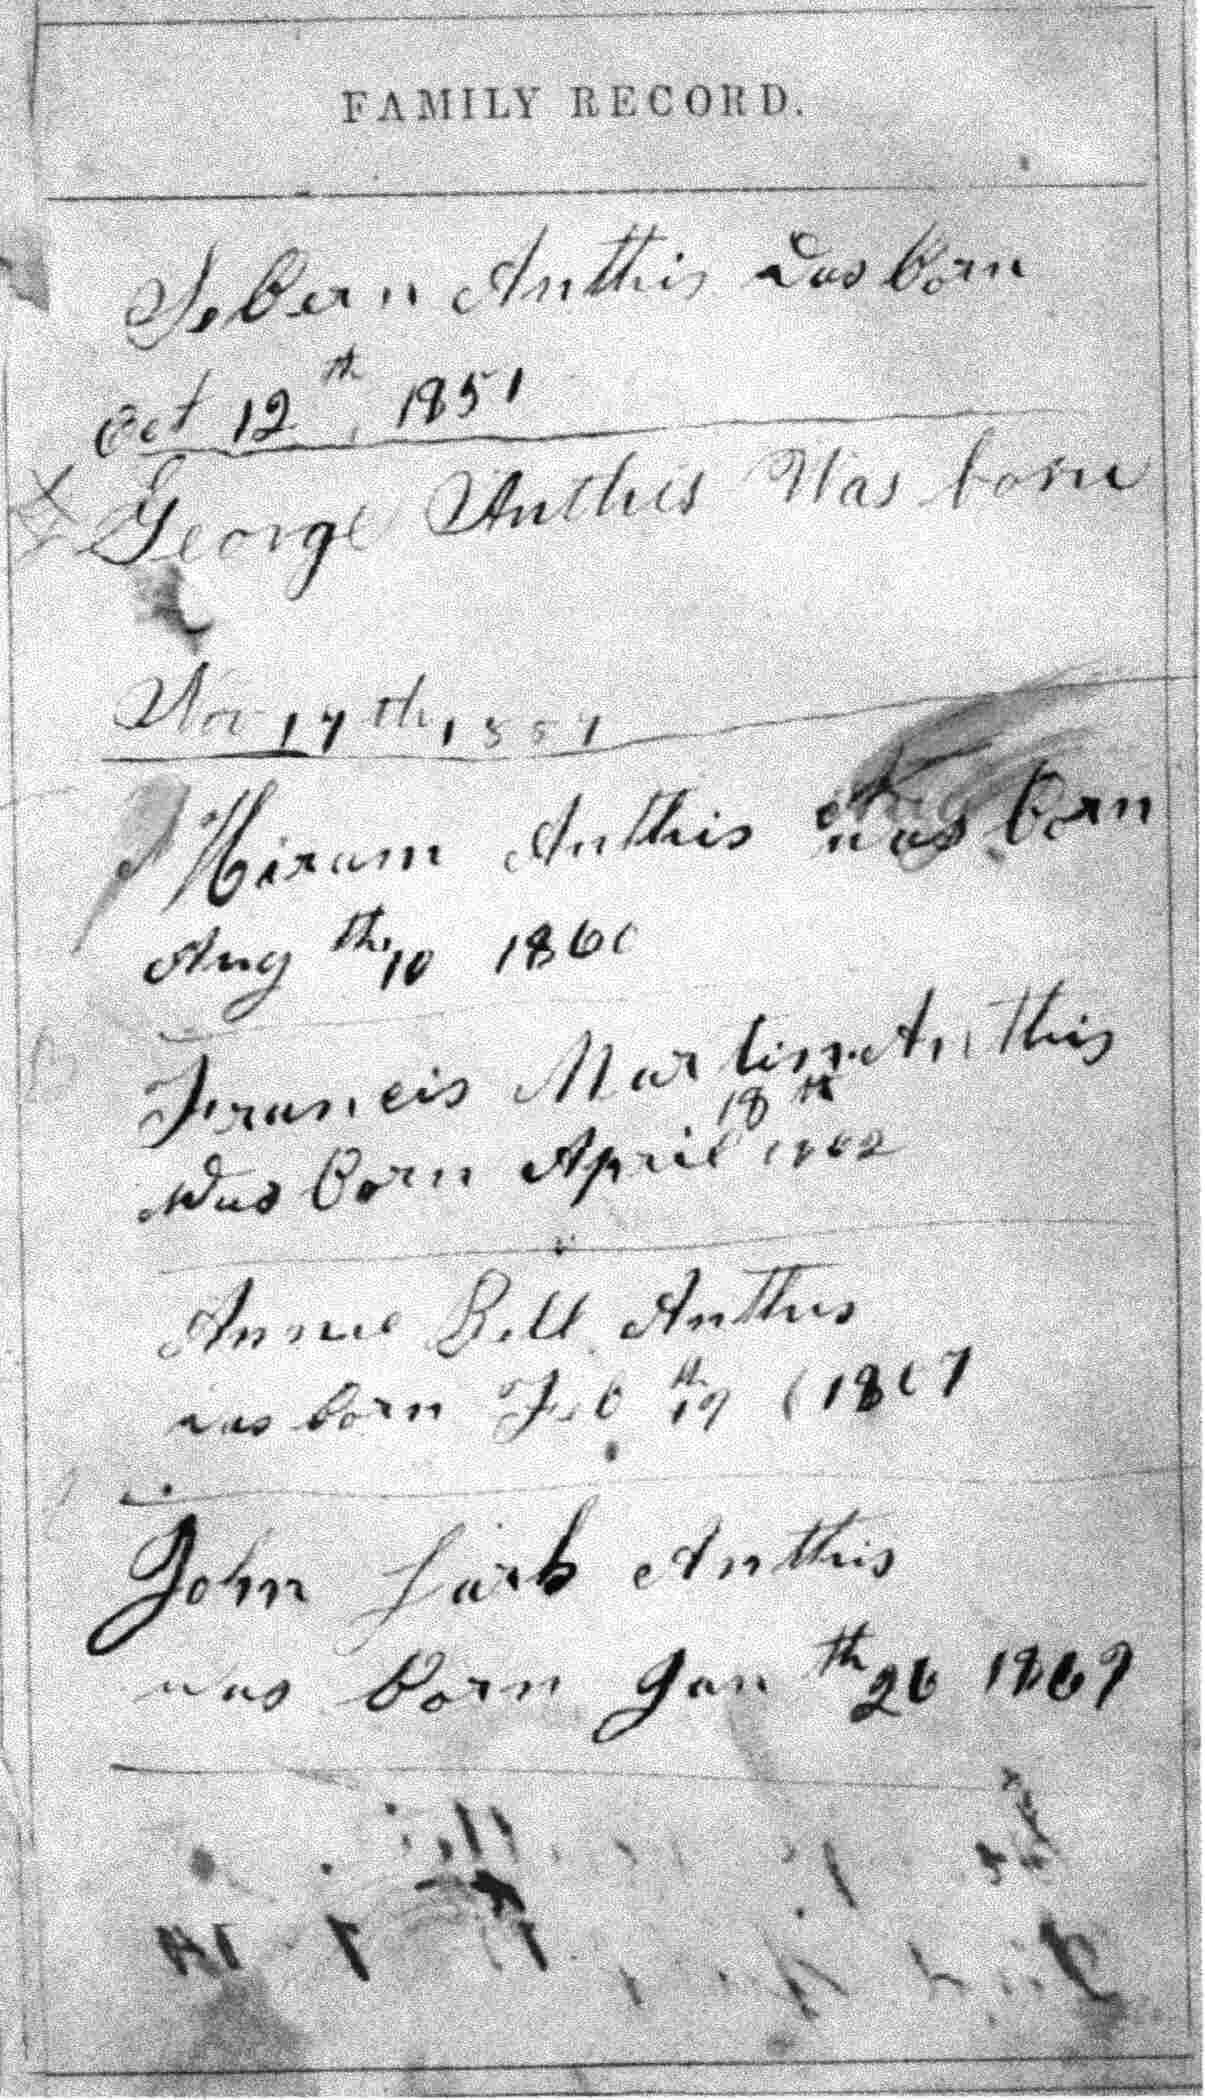 FAMILY RECORD.
Sebern Anthis Was Born
Oct 12th 1851
George Anthis Was born
Nov 17th 1857
Hiram Anthis was Born
Aug th 10 1860
Francis Martin Anthis
18th
Was Born April 1862
Annie Bell Anthis
was born Feb th 19 1867
John Lark Anthis
was Born Jan th 26 1869